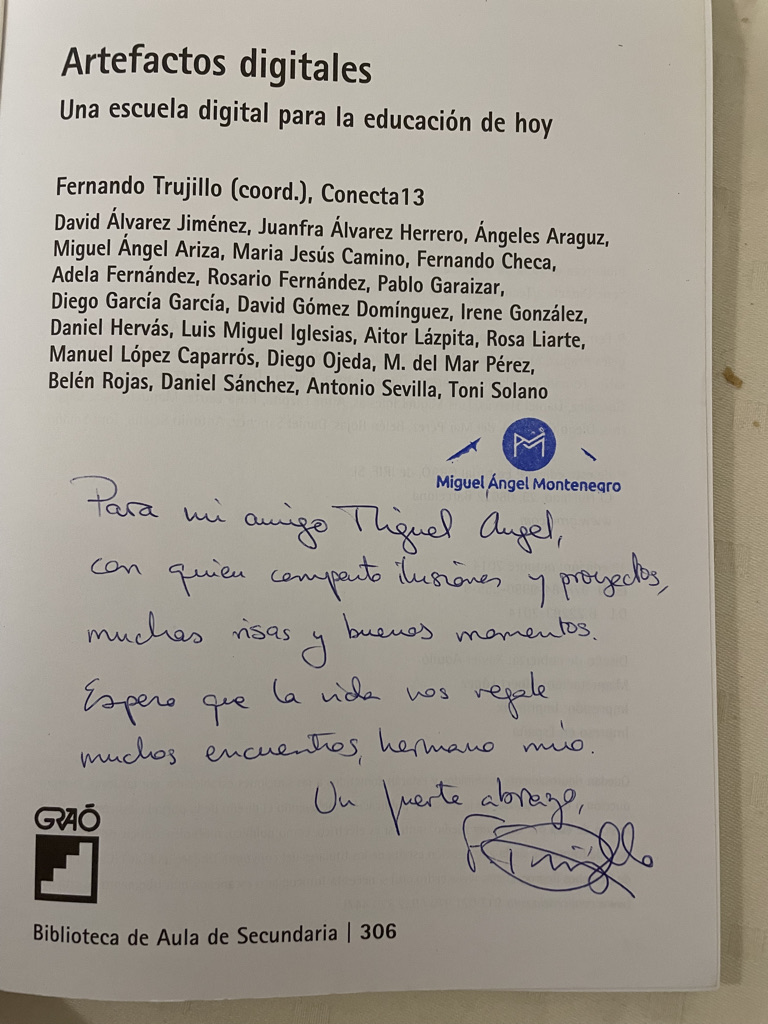 Artefactos digitales
Una escuela digital para la educación de hoy
Fernando Trujillo (coord.), Conecta13
David Álvarez Jiménez, Juanfra Álvarez Herrero, Ángeles Araguz,
Miguel Ángel Ariza, Maria Jesús Camino, Fernando Checa,
Adela Fernández, Rosario Fernández, Pablo Garaizar,
Diego García García, David Gómez Domínguez, Irene González,
Daniel Hervás, Luis Miguel Iglesias, Aitor Lázpita, Rosa Liarte,
Manuel López Caparrós, Diego Ojeda, M. del Mar Pérez,
Belén Rojas, Daniel Sánchez, Antonio Sevilla, Toni Solano
Miguel Ángel Montenegro
Para mi amigo Miguel Angel,
con quien comparto ilusiones y proyectos,
muchas risas y buenos momentos.
Espero que la vida nos regale
muchos encuentros, hermano mío.
Un fuerte abrazo,
F. Trujillo
GRAÓ
Biblioteca de Aula de Secundaria | 306